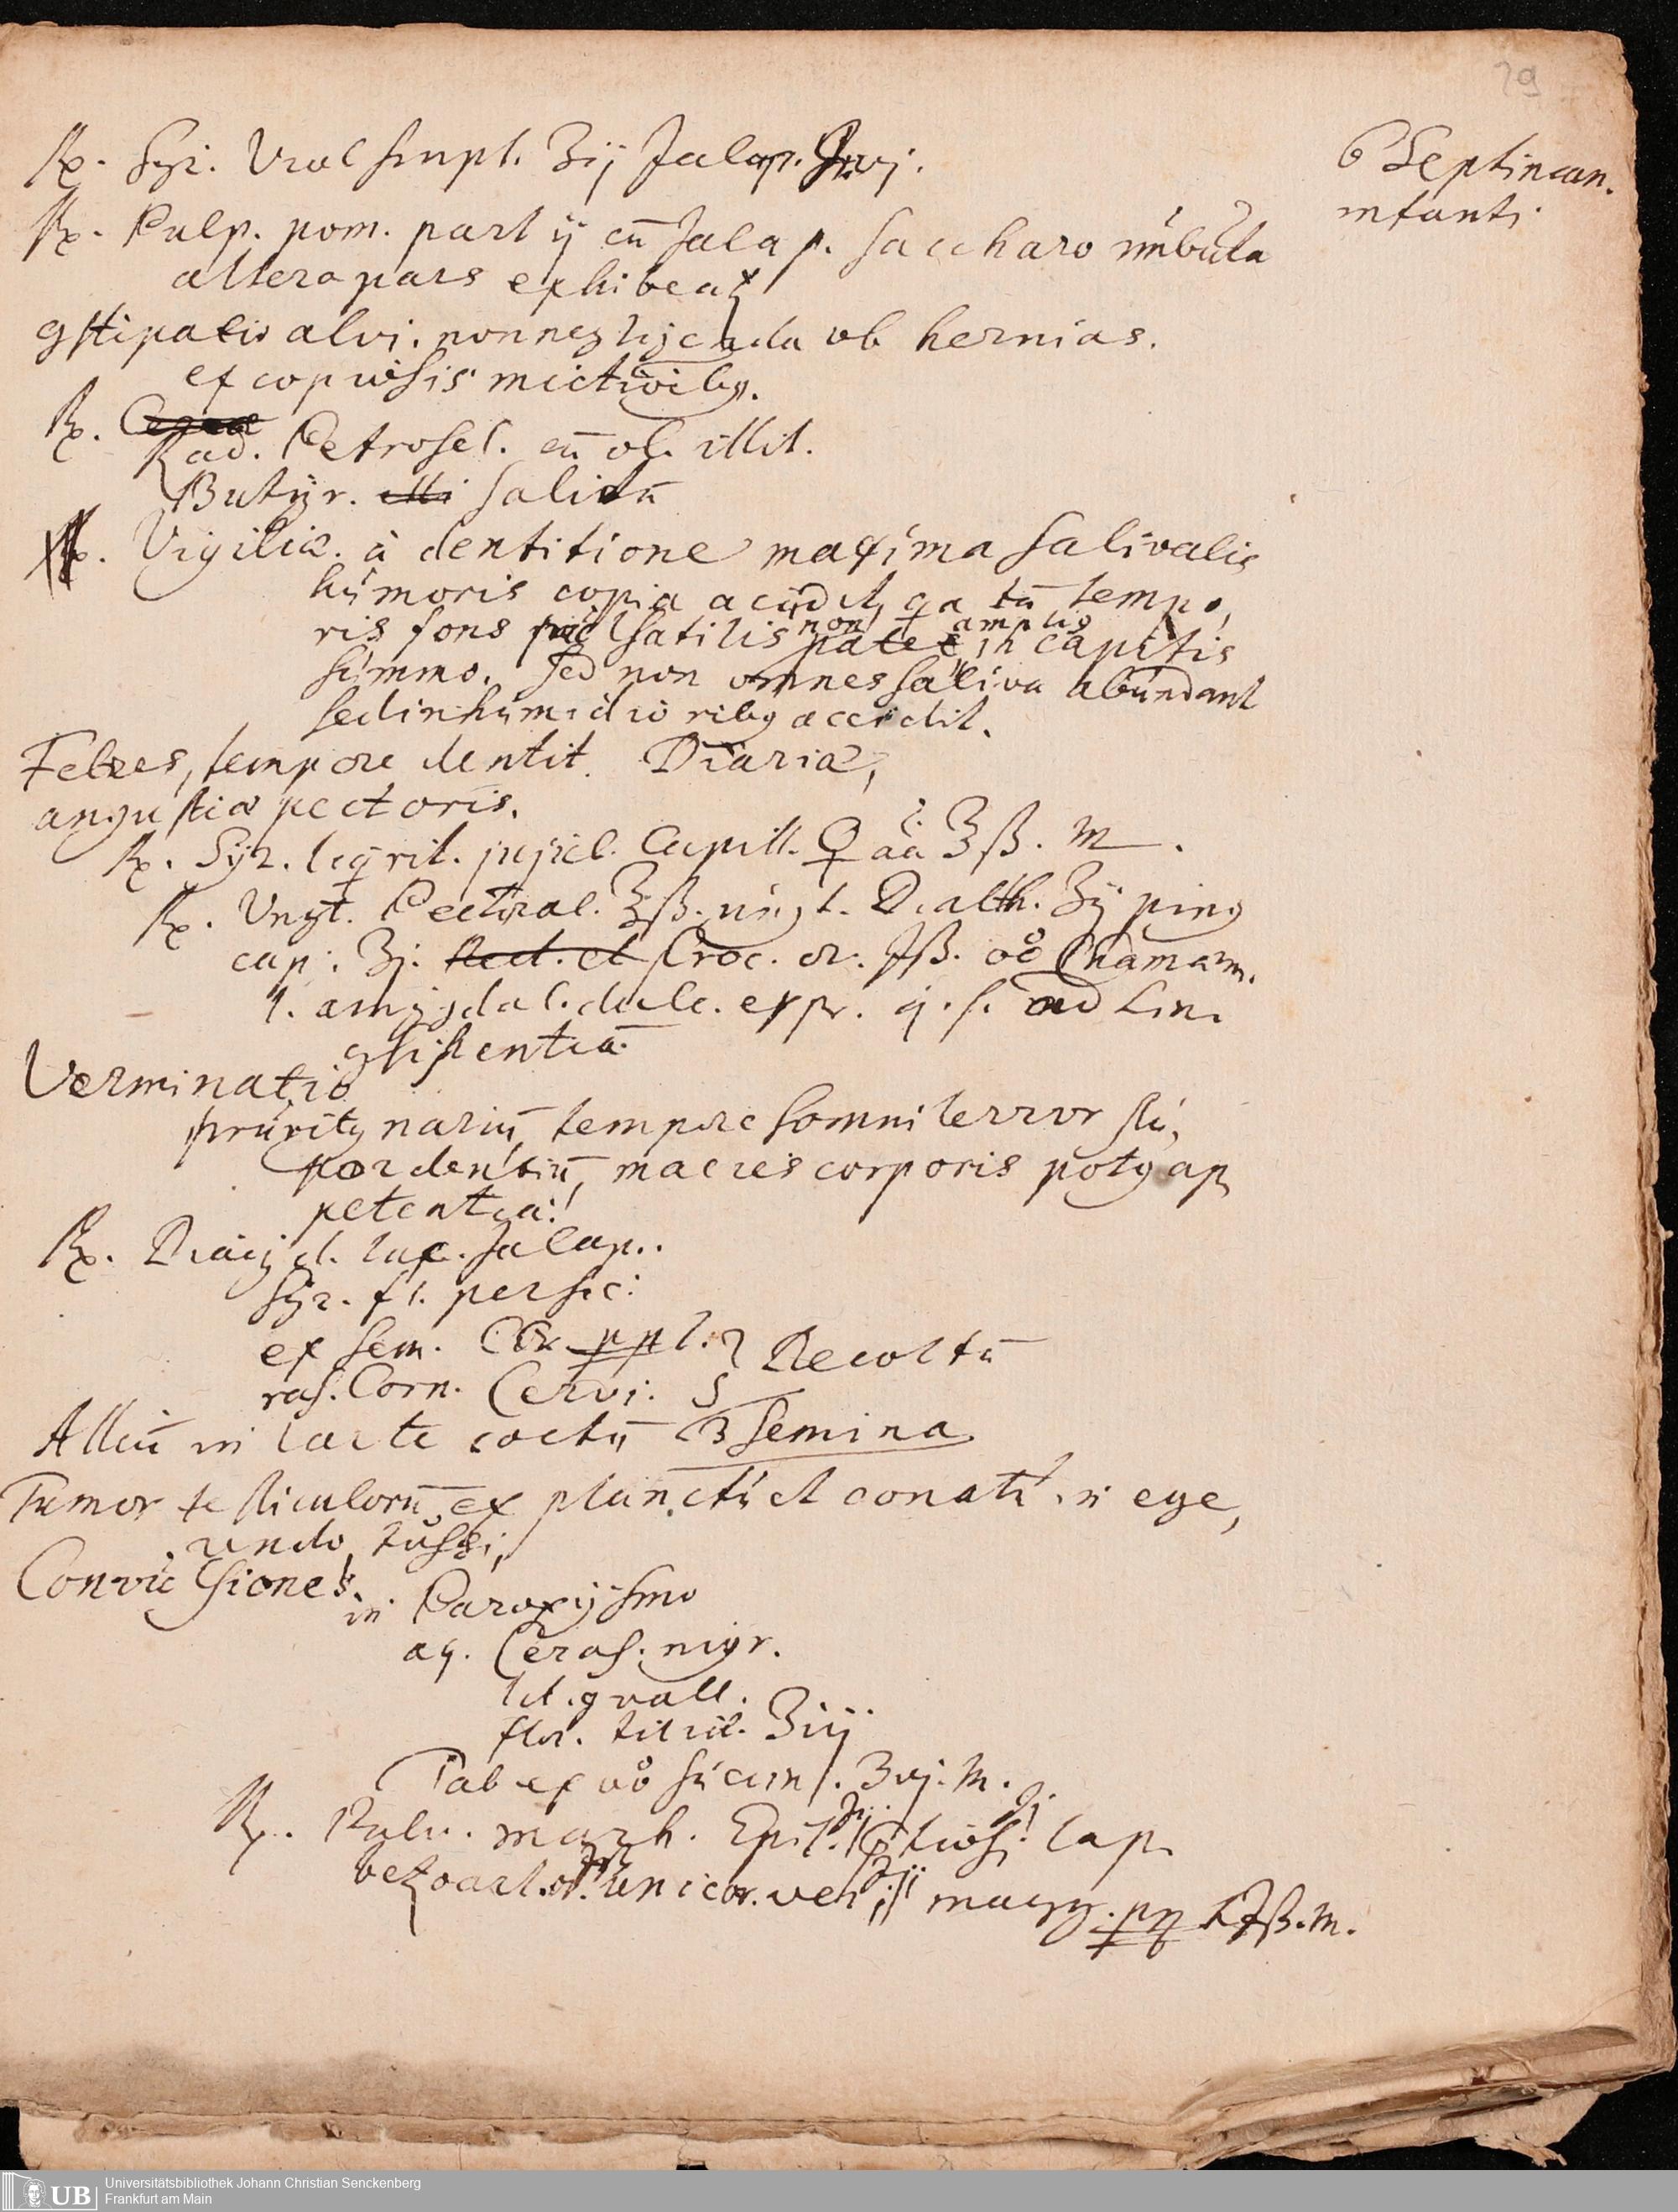 29
℞. Syr. Viol simpl. ℥ij Jalap. gr. vj.
6 Septinan.
infanti
℞. Pulp. pom. part ij cū Jalap. saccharo imbuta
altera pars exhibeat
9stipatio alvi. non negligenda ob hernias.
ex copiosis mictioib9.
℞. Rad. Petrosel. cū ol. illit.
Butyr. salitū
Vigiliæ. à dentitione maxima salivalis
humoris copia accidit, qa tū tempo,
ris fons pulsatilis non patet amplis in capitis
summo. Sed non omnes saliva abundant
sed in humidiorib9 accidit.
Febres, tempore dentit. Diariæ,
angustiæ pectoris.
℞. Syr. liqvirit. jujub. Capill. ♀ aã ℥ß. M.
℞. Ungt. Pectoral. ℥ß. ungt. Dialth. ʒij ping
cap. ʒj. Croc. or. ℈ß. oo Chamæm.
l. amygdal. dulc. expr. q. s. ad Lin.
9sistentiā.
Verminatio
prurit9 nariū, tempore somni terror stu,
por dentiū, macies corporis pot9 ap
petentia.
℞. Diagyd. lax. Jalap.
Syr. fl. persic:
ex sem.
ras. Corn. Cervi. Decoctū
Alliū in lacte coctū semina
Tumor testiculorū, ex planctu et conatu in ege,
rendo, tussi,
Convulsiones.
in Paroxysmo
aq. Ceras. nigr.
lil. 9vall.
flor. tiliæ. ʒiij
Tab ex oo succin. ʒvj. M.
℞. Pulv. march. Epil. lap.
bezoart. or. unicor. ver. magg. ppt ℈ß. M.
Universitätsbibliothek Johann Christian Senckenberg
UB Frankfurt am Main